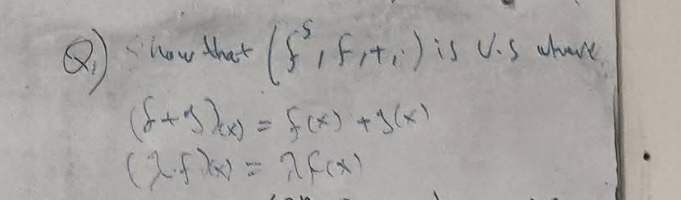 Q1) show that (f^s, f, +, .) is V.S where
(f+g)(x) = f(x) + g(x)
(λ.f)(x) = λf(x)